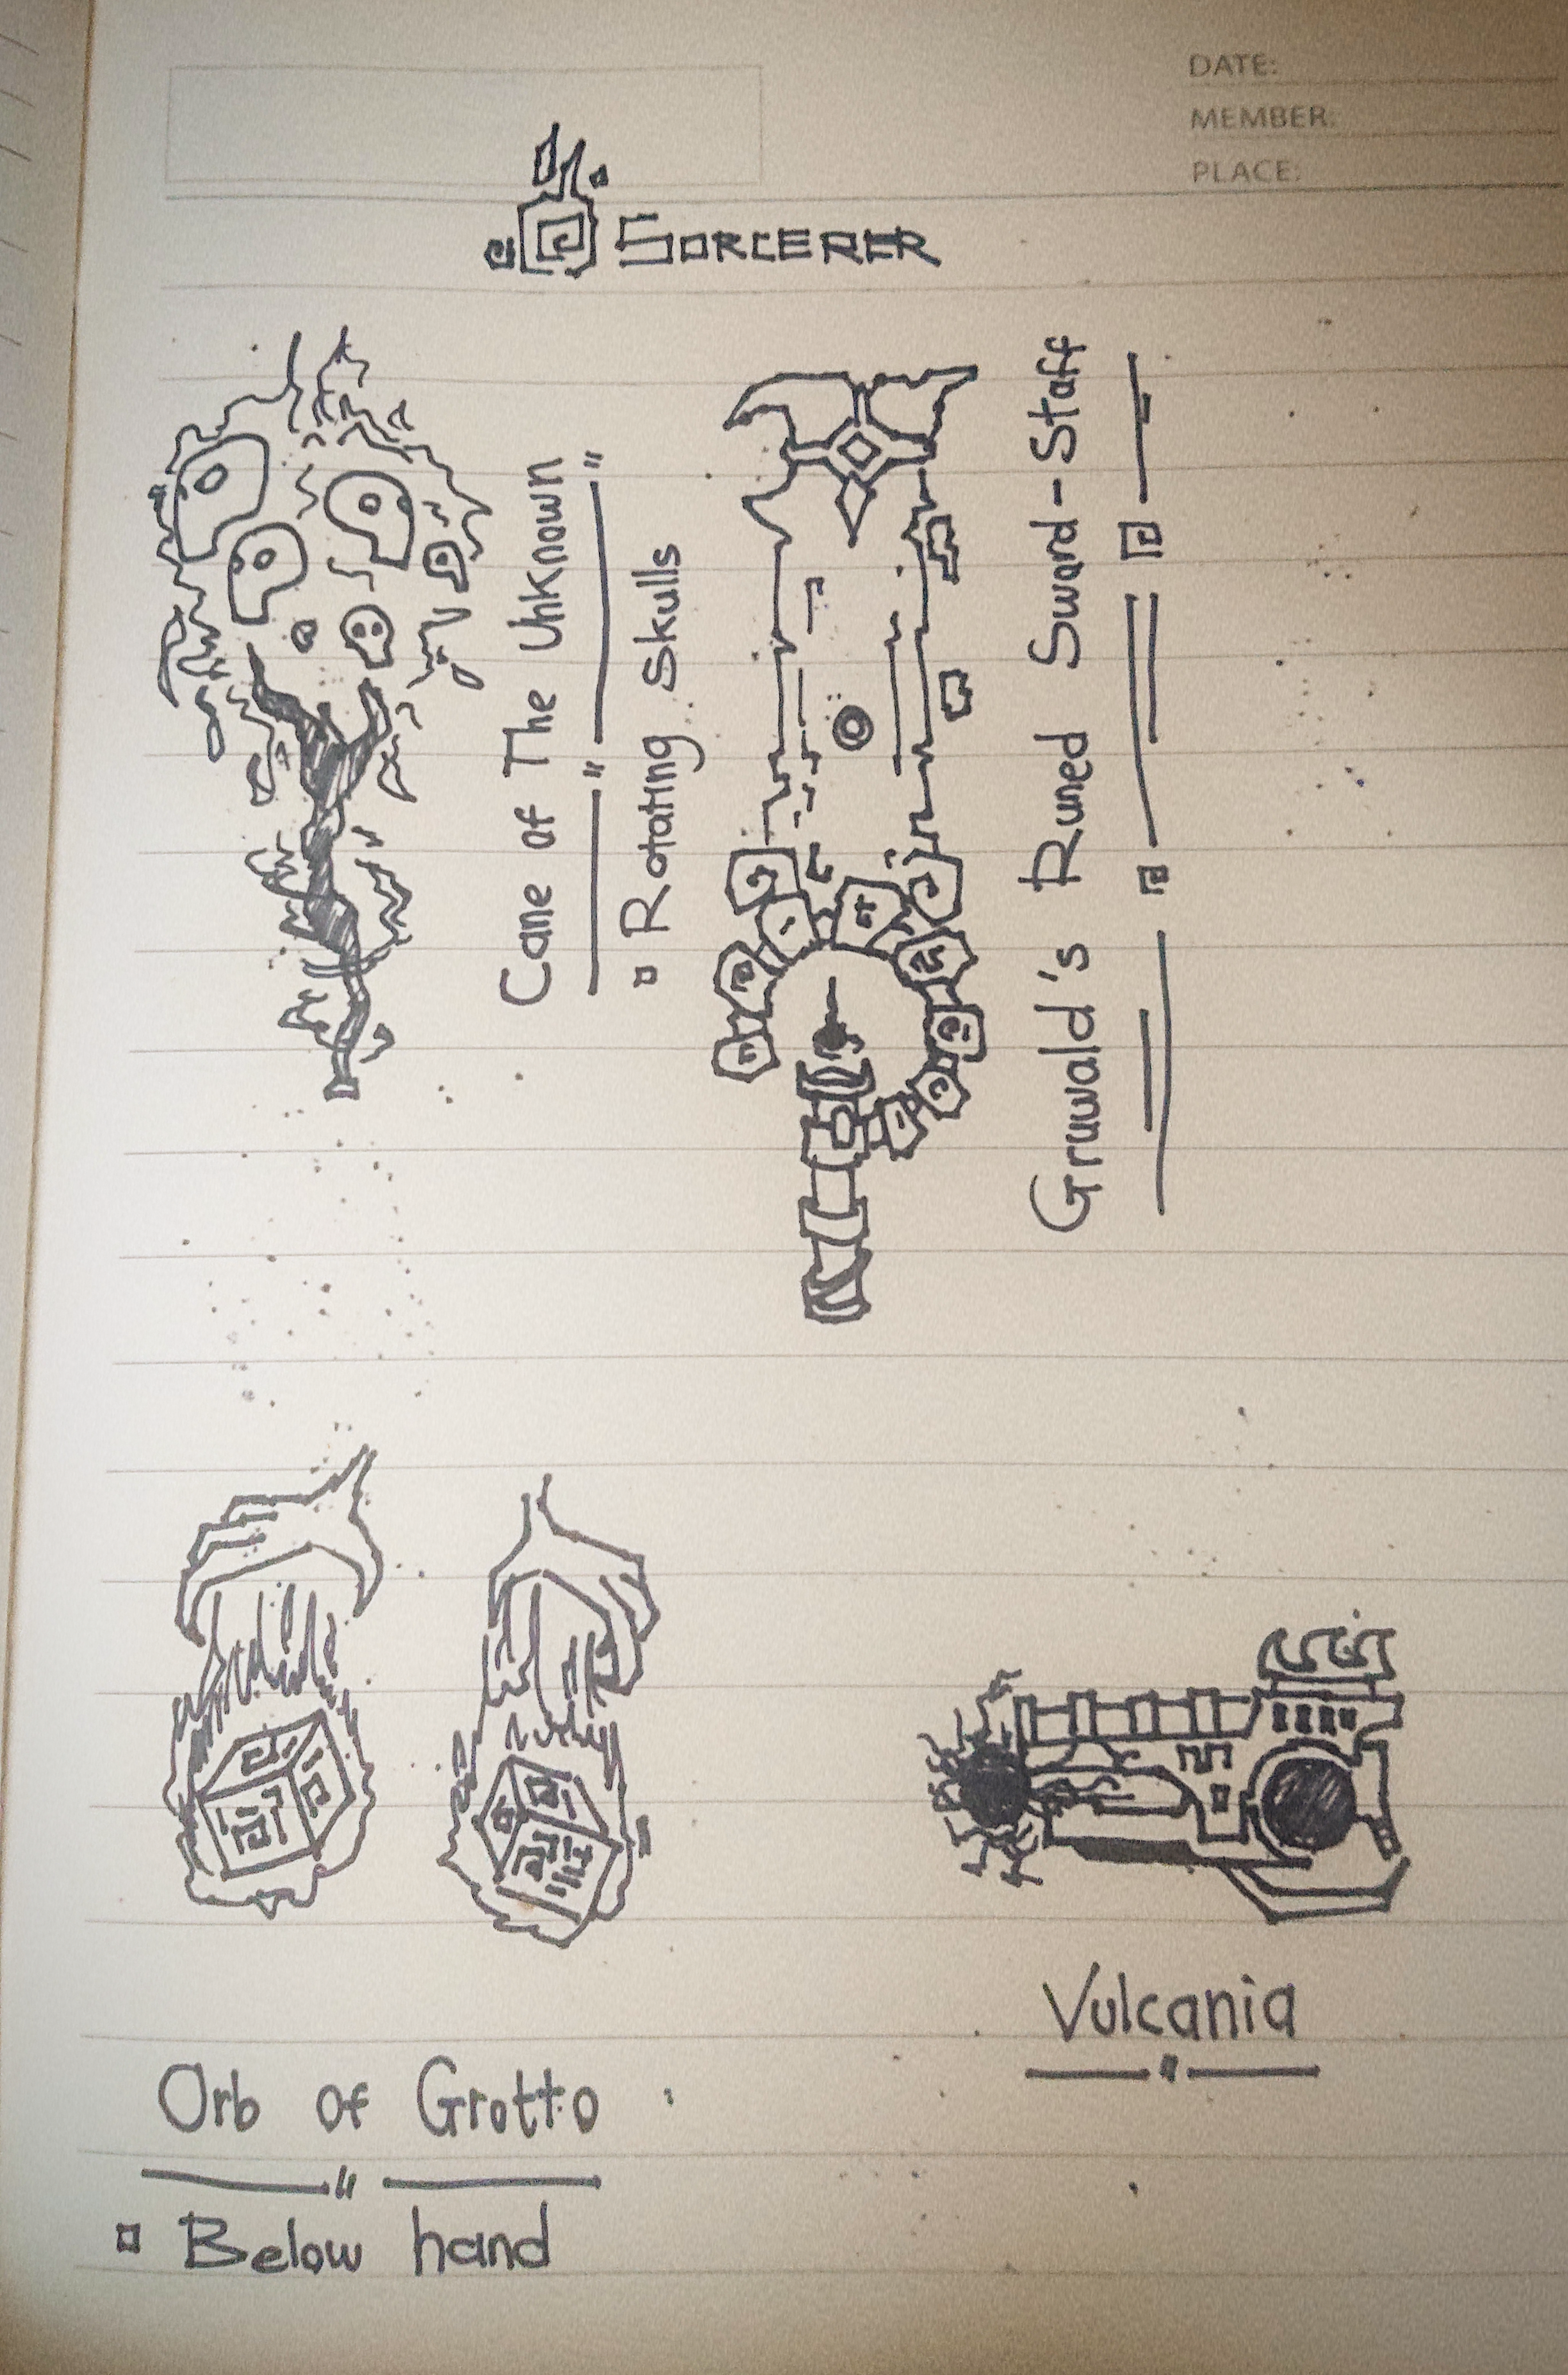 DATE:
MEMBER:
PLACE:
SORCERER
Cane of The Unknown
Rotating Skulls
Gruwald's Runed Sword-Staff
Vulcania
Orb of Grotto
Below hand